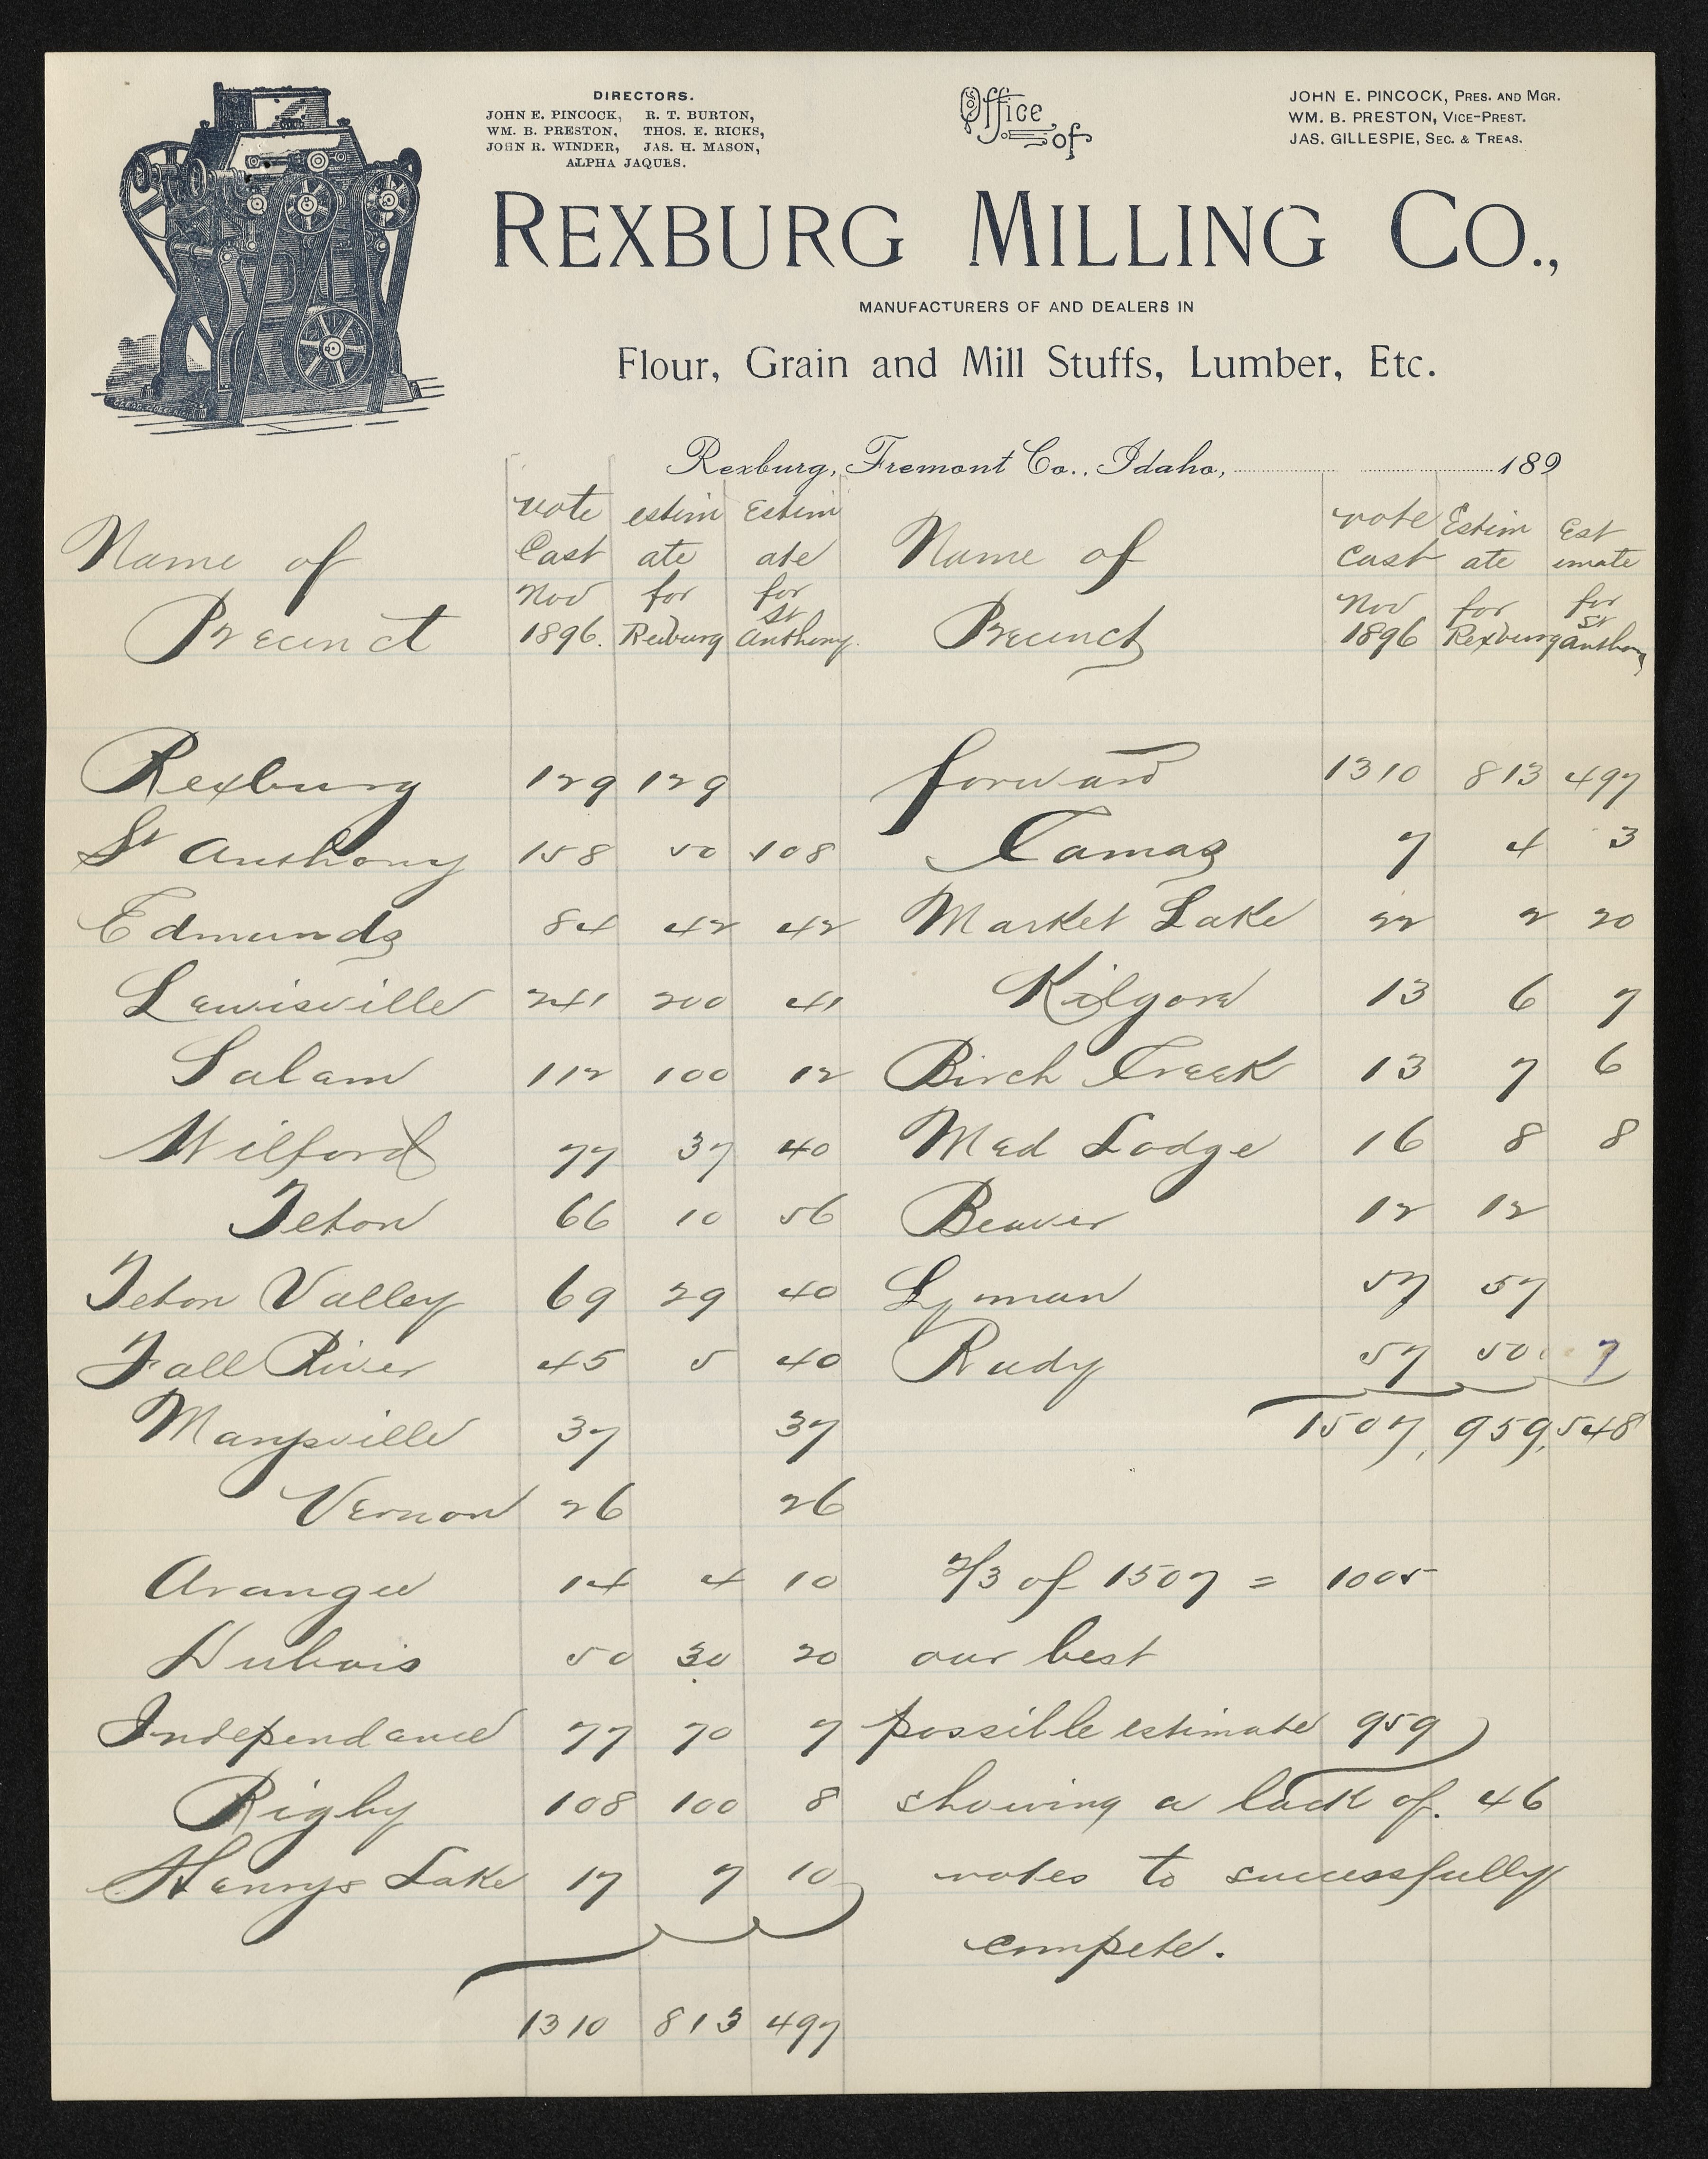 DIRECTORS.
JOHN E. PINCOCK, R. T. BURTON,
WM. B. PRESTON, THOS. E. RICKS,
JOHN R. WINDER, JAS. H. MASON,
ALPHA JAQUES.
Office of
JOHN E. PINCOCK, PRES. AND MGR.
WM. B. PRESTON, VICE-PREST.
JAS. GILLESPIE, SEC. & TREAS.
REXBURG MILLING CO.,
MANUFACTURERS OF AND DEALERS IN
Flour, Grain and Mill Stuffs, Lumber, Etc.
Rexburg, Fremont Co., Idaho, 189
Name of Precinct
vote Cast Nov 1896.
estim ate for Rexburg
Estim ate for St Anthony.
Rexburg 129 129
St Anthony 158 50 108
Edmunds 84 42 42
Lewisville 241 200 41
Salam 112 100 12
Wilford 77 37 40
Teton 66 10 56
Teton Valley 69 29 40
Fall River 45 5 40
Marysville 37 37
Vernon 26 26
Arangee 14 4 10
Dubois 50 30 20
Independance 77 70 7
Rigby 108 100 8
Henrys Lake 17 7 10
1310 813 497
Name of Precinct
vote Cast Nov 1896
Estim ate for Rexburg
Est imate for St Anthony
forward 1310 813 497
Camas 7 4 3
Market Lake 22 2 20
Kilgore 13 6 7
Birch Creek 13 7 6
Med Lodge 16 8 8
Beaver 12 12
Lyman 57 57
Rudy 57 50 7
1507, 959, 548
2/3 of 1507 = 1005
our best
possible estimate 959
showing a lack of. 46
votes to successfully
compete.